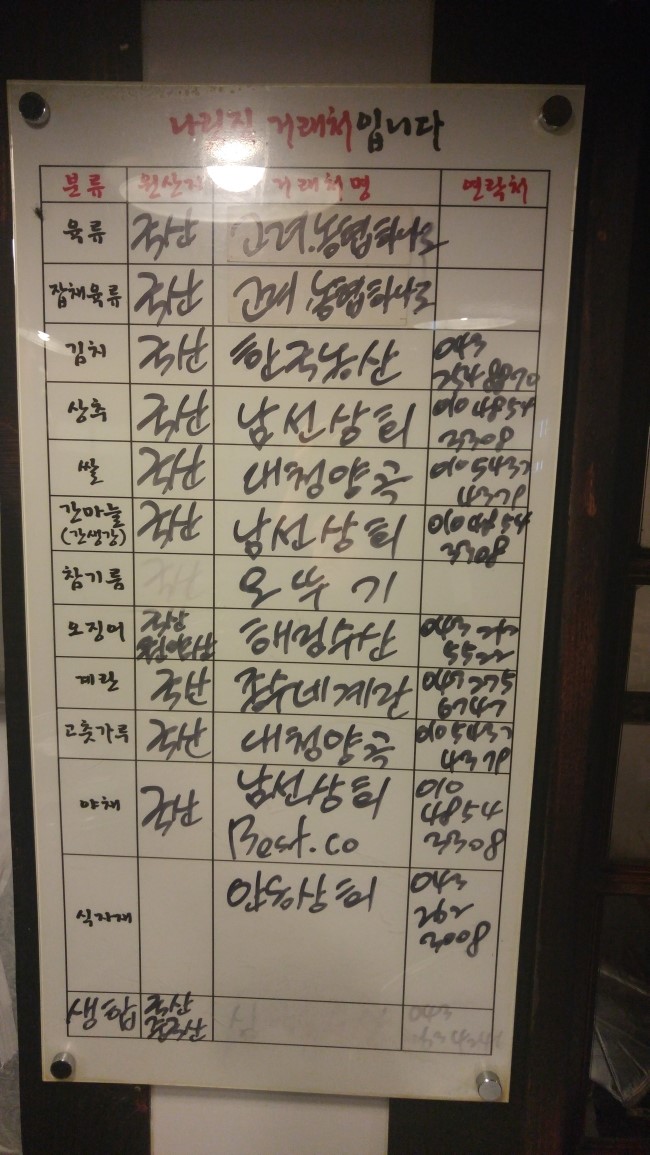 나림집 거래처입니다
분류 원산지 거래처명 연락처
육류 국산 고려.농협하나로
잡채육류 국산 고려.농협하나로
김치 국산 한국농산 043
254 8870
상추 국산 남선상회 010 4854
3308
쌀 국산 대청양곡 010 5437
4378
간마늘 국산 남선상회 010 4854
(간생강) 3308
참기름 오뚜기
오징어 해림수산 043
5522
계란 국산 계란 043 275
6747
고춧가루 국산 대청양곡 010 5437
4378
야채 국산 남선상회 010
Best.co 4854
3308
식자재 043
262
3008
국산